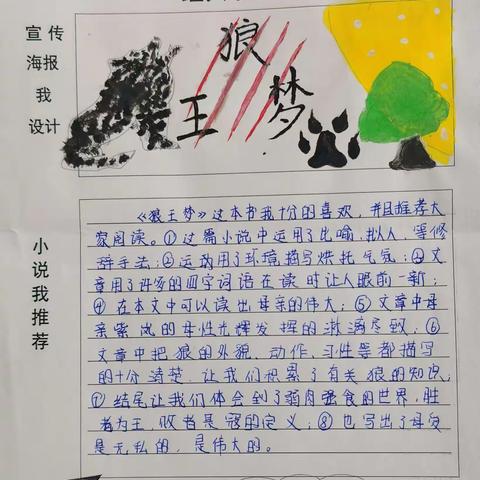 宣传
海报
我
设计
狼
王
梦
小说我推荐
《狼王梦》这本书我十分的喜欢,并且推荐大
家阅读。①这篇小说中运用了比喻、拟人、等修
辞手法;②运用了环境描写烘托气氛;③文
章用了许多的四字词语在读时让人眼前一新;
④在本文中可以读出母亲的伟大;⑤文章中母
亲紫岚的母性光辉发挥的淋漓尽致;⑥
文章中把狼的外貌、动作、习性等都描写
的十分清楚,让我们积累了有关狼的知识;
⑦结尾让我们体会到了弱肉强食的世界,胜
者为王,败者是寇的定义;⑧也写出了母爱
是无私的,是伟大的。